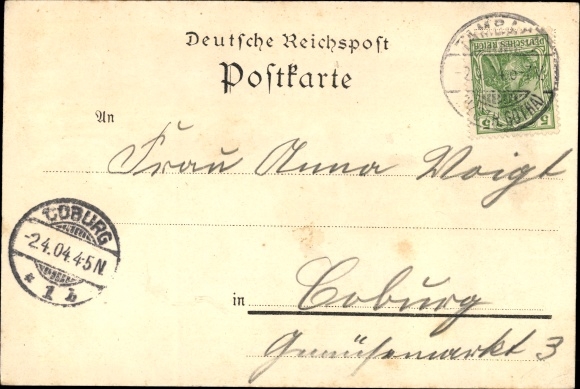 Deutsche Reichspost
Postkarte
An
Frau Anna Voigt
in Coburg
Gemüsemarkt 3
COBURG
-2.4.04.4-5N.
* 1 b
DEUTSCHES REICH
5 5
GOTHA)